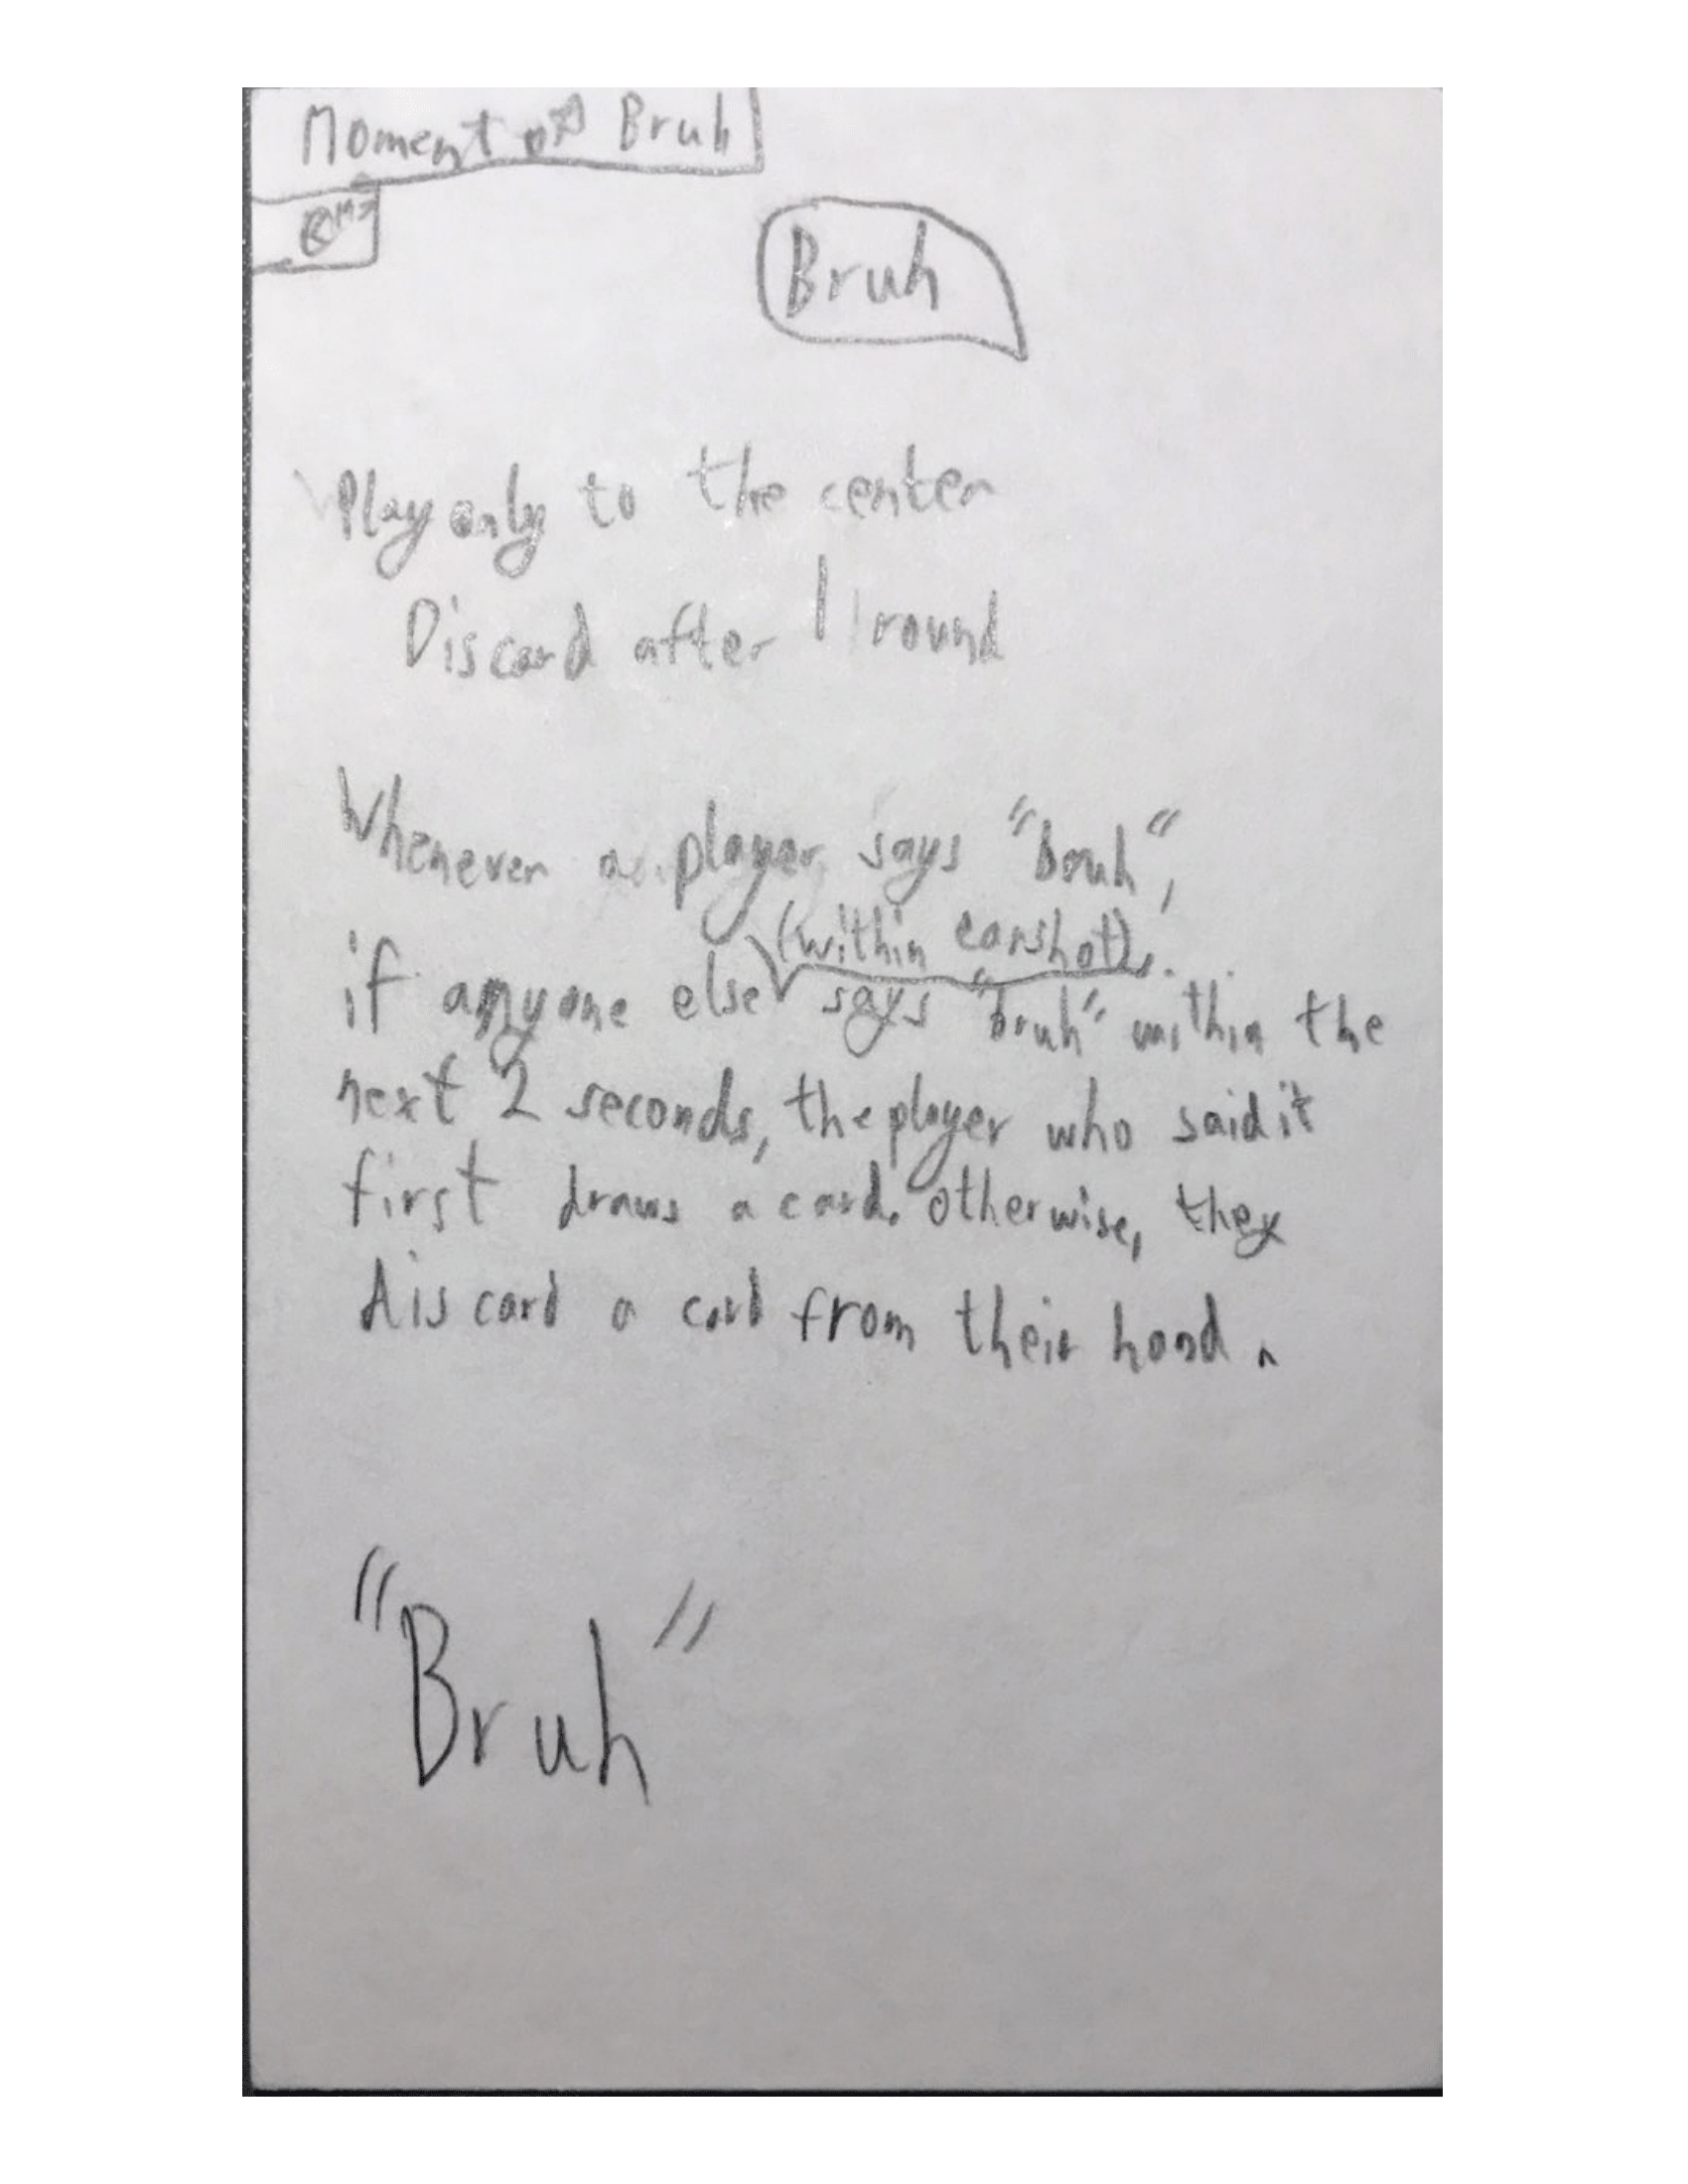 Moment of Bruh
Bruh
Play only to the center
Discard after 1 round
Whenever a player says "bruh",
(within earshot)
if anyone else says "bruh" within the
next 2 seconds, the player who said it
first draws a card. Otherwise, they
discard a card from their hand.
"Bruh"